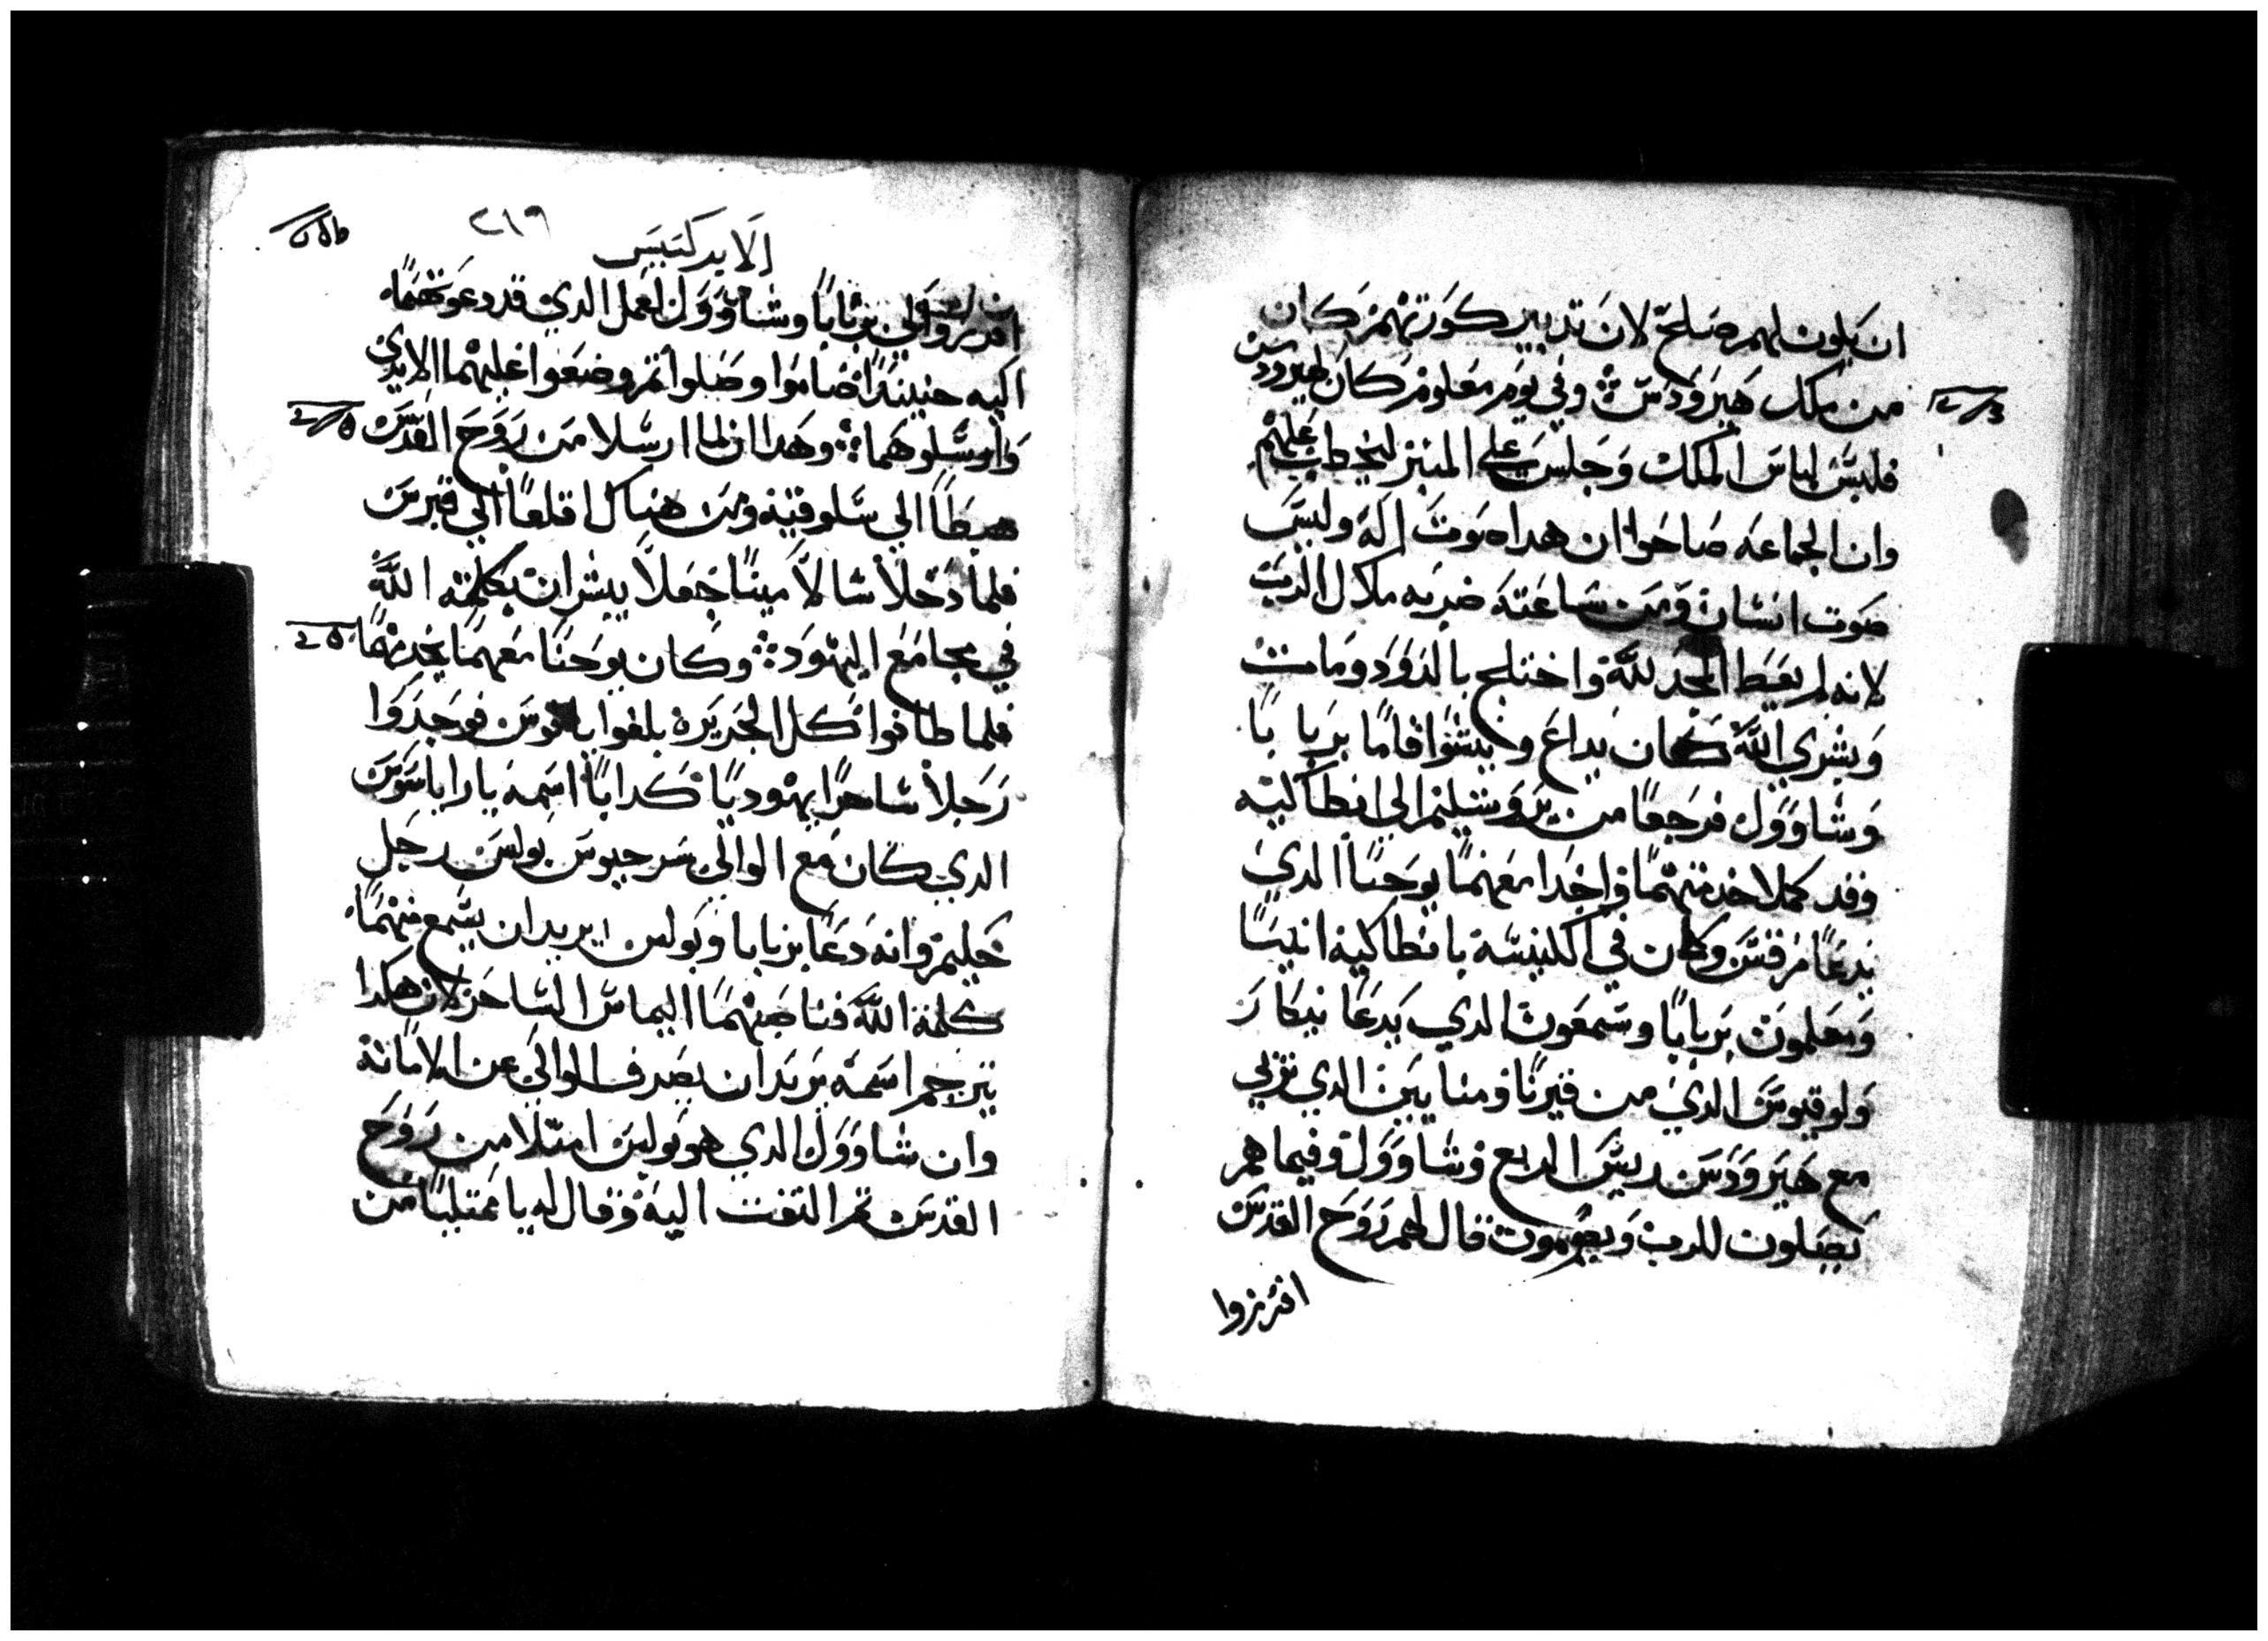 ان يكون لهم صلح لان تدبير كورتهم كان
من ملك هيرودس وفي يوم معلوم كان هيرودس
فلبس لباس الملك وجلس علي المنبر ليخطب عليهم
وان الجماعه صاحوا ان هدا صوت اله وليس
صوت انسان ومن ساعته ضربه ملاك الرب
لانه لم يعط المجد لله واختلج بالدود ومات
وبشري الله كان يداع وينشوا فاما برنابا
وشاوول فرجعا من يروشليم الي انطاكيه
وقد كملا خدمتهما واخدا معهما يوحنا الدي
يدعا مرقس وكان في الكنيسة بانطاكية انبيا
ومعلمون برنابا وسمعون الدي يدعا نيكار
ولوقيوس الدي من قيرنا ومنايين الدي تربي
مع هيرودس ريس الربع وشاوول وفيما هم
يصلون للرب ويصومون قال لهم روح القدس
افرزوا
٢١٩
الابركسيس
افرزوا لي برنابا وشاوول لعمل الدي قد دعوتهما
اليه حينيدا صاموا وصلوا تم وضعوا عليهما الايدي
وارسلوهما وهدان لما ارسلا من روح القدس
هبطا الي سلوقيه ومن هناك اقلعا الي قبرس
فلما دخلا سالامينا جعلا يبشران بكلمة الله
في مجامع اليهود وكان يوحنا معهما يخدمهما
فلما طافوا كل الجزيره بلغوا بافوس فوجدوا
رجلا ساحرا يهوديا كدابا اسمه ياراياسوس
الدي كان مع الوالي سرجيوس بولس رجل
حليم وانه دعا برنابا وبولس يريدان يسمع منهما
كلمة الله فناصبهما اليماس الساحر لان هكدا
يترجم اسمه يريدان يصرف الوالي عن الامانة
وان شاوول الدي هو بولس امتلا من روح
القدس تم التفت اليه وقال له يا ممتليا من